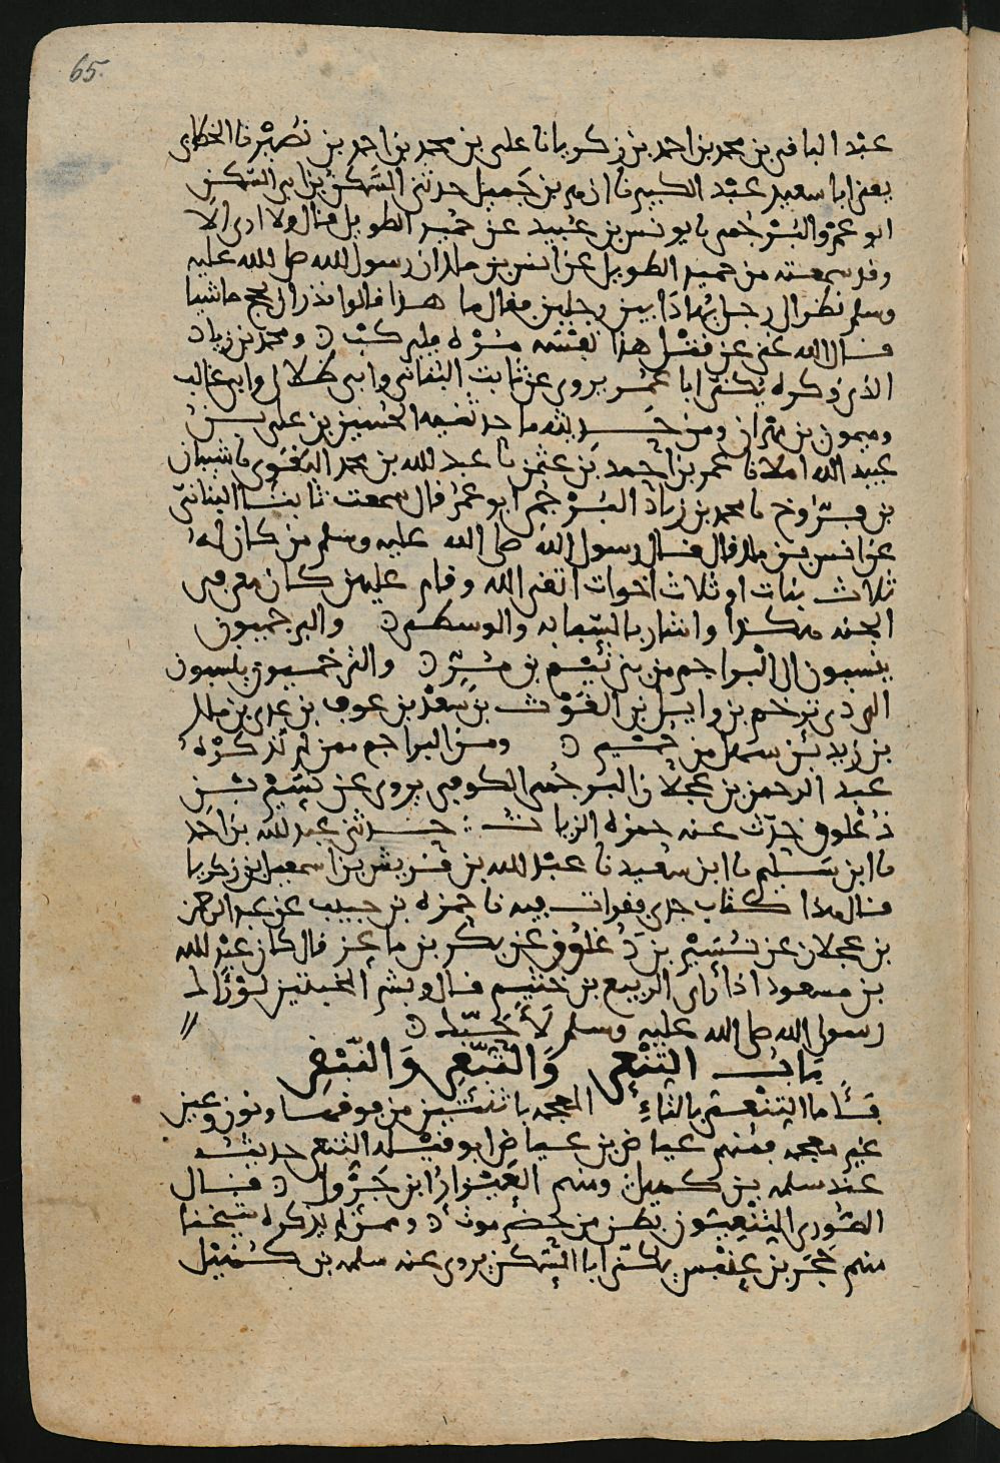 65.
عبد الباقي بن محمد بن احمد بن زكريا نا علي بن محمد بن احمد بن نصير نا الخطابي
يعني ابا سعيد عبد الكبير نا ازهر بن جميل حدثني السكن بن ابي السكن
ابو عمرو البرجمي نا يونس بن عبيد عن حميد الطويل قال ولا ارى الا
وقد سمعته من حميد الطويل عن انس بن ملك ان رسول الله صلى الله عليه
وسلم نظر الى رجل يهادا بين رجلين فقال ما هذا قالوا نذر ان يحج ماشيا
فقال الله غني عن هذا نفسه مره فليركب ومحمد بن زياد
الذي ذكره يكنى ابا عمر يروي عن ثابت البناني وابي ظلال وابي غالب
وميمون بن مهران ومن حديثه ما حدثنيه الحسين بن علي بن
عبيد الله املا نا عمر بن احمد بن عثمن نا عبد الله بن محمد البغوي نا شيبان
بن فروخ نا محمد بن زياد البرجمي ابو عمر قال سمعت ثابتا البناني
عن انس بن ملك قال قال رسول الله صلى الله عليه وسلم من كان له
ثلاث بنات او ثلاث اخوات اتقى الله وقام عليهن كان معي في
الجنه هكذا واشار بالسبابه والوسطى والبرجميون
ينسبون الى البراجم من بني تميم بن مر والترخميون ينسبون
الى ذي ترخم بن وايل بن الغوث بن سعد بن عوف بن عدي بن ملك
بن زيد بن سهل من حمير ومن البراجم ممن لم نذكره
عبد الرحمن بن عجلان البرجمي الكوفي يروي عن نسير بن
ذعلوق حدث عنه حمزه الزيات حدثني عبد الله بن احمد
نا ابن سليم نا ابن سعيد نا عبد الله بن قريش بن اسمعيل بن زكريا
قال هذا كتاب جدي فقرات فيه نا حمزه بن حبيب عن عبد الرحمن
بن عجلان عن نسير بن ذعلوق عن بكر بن ماعز قال كان عبد الله
بن مسعود اذا راى الربيع بن خثيم قال وبشر المخبتين لو راك
رسول الله صلى الله عليه وسلم لاحبك
باب التنعي والتبعي والنبغي
فاما التنعي بالتاء المعجمه باثنتين من فوقها ونون وعين
غير معجمه فمنهم عياض بن عياض ابو قيله التنعي حديثه
عند سلمه بن كهيل ومنهم العيزار ابن جرول قال
الصوري التنعيون بطن من حضرموت وممن لم يذكره شيخنا
منهم حجر بن عنبس يكنى ابا السكن يروي عنه سلمه بن كهيل